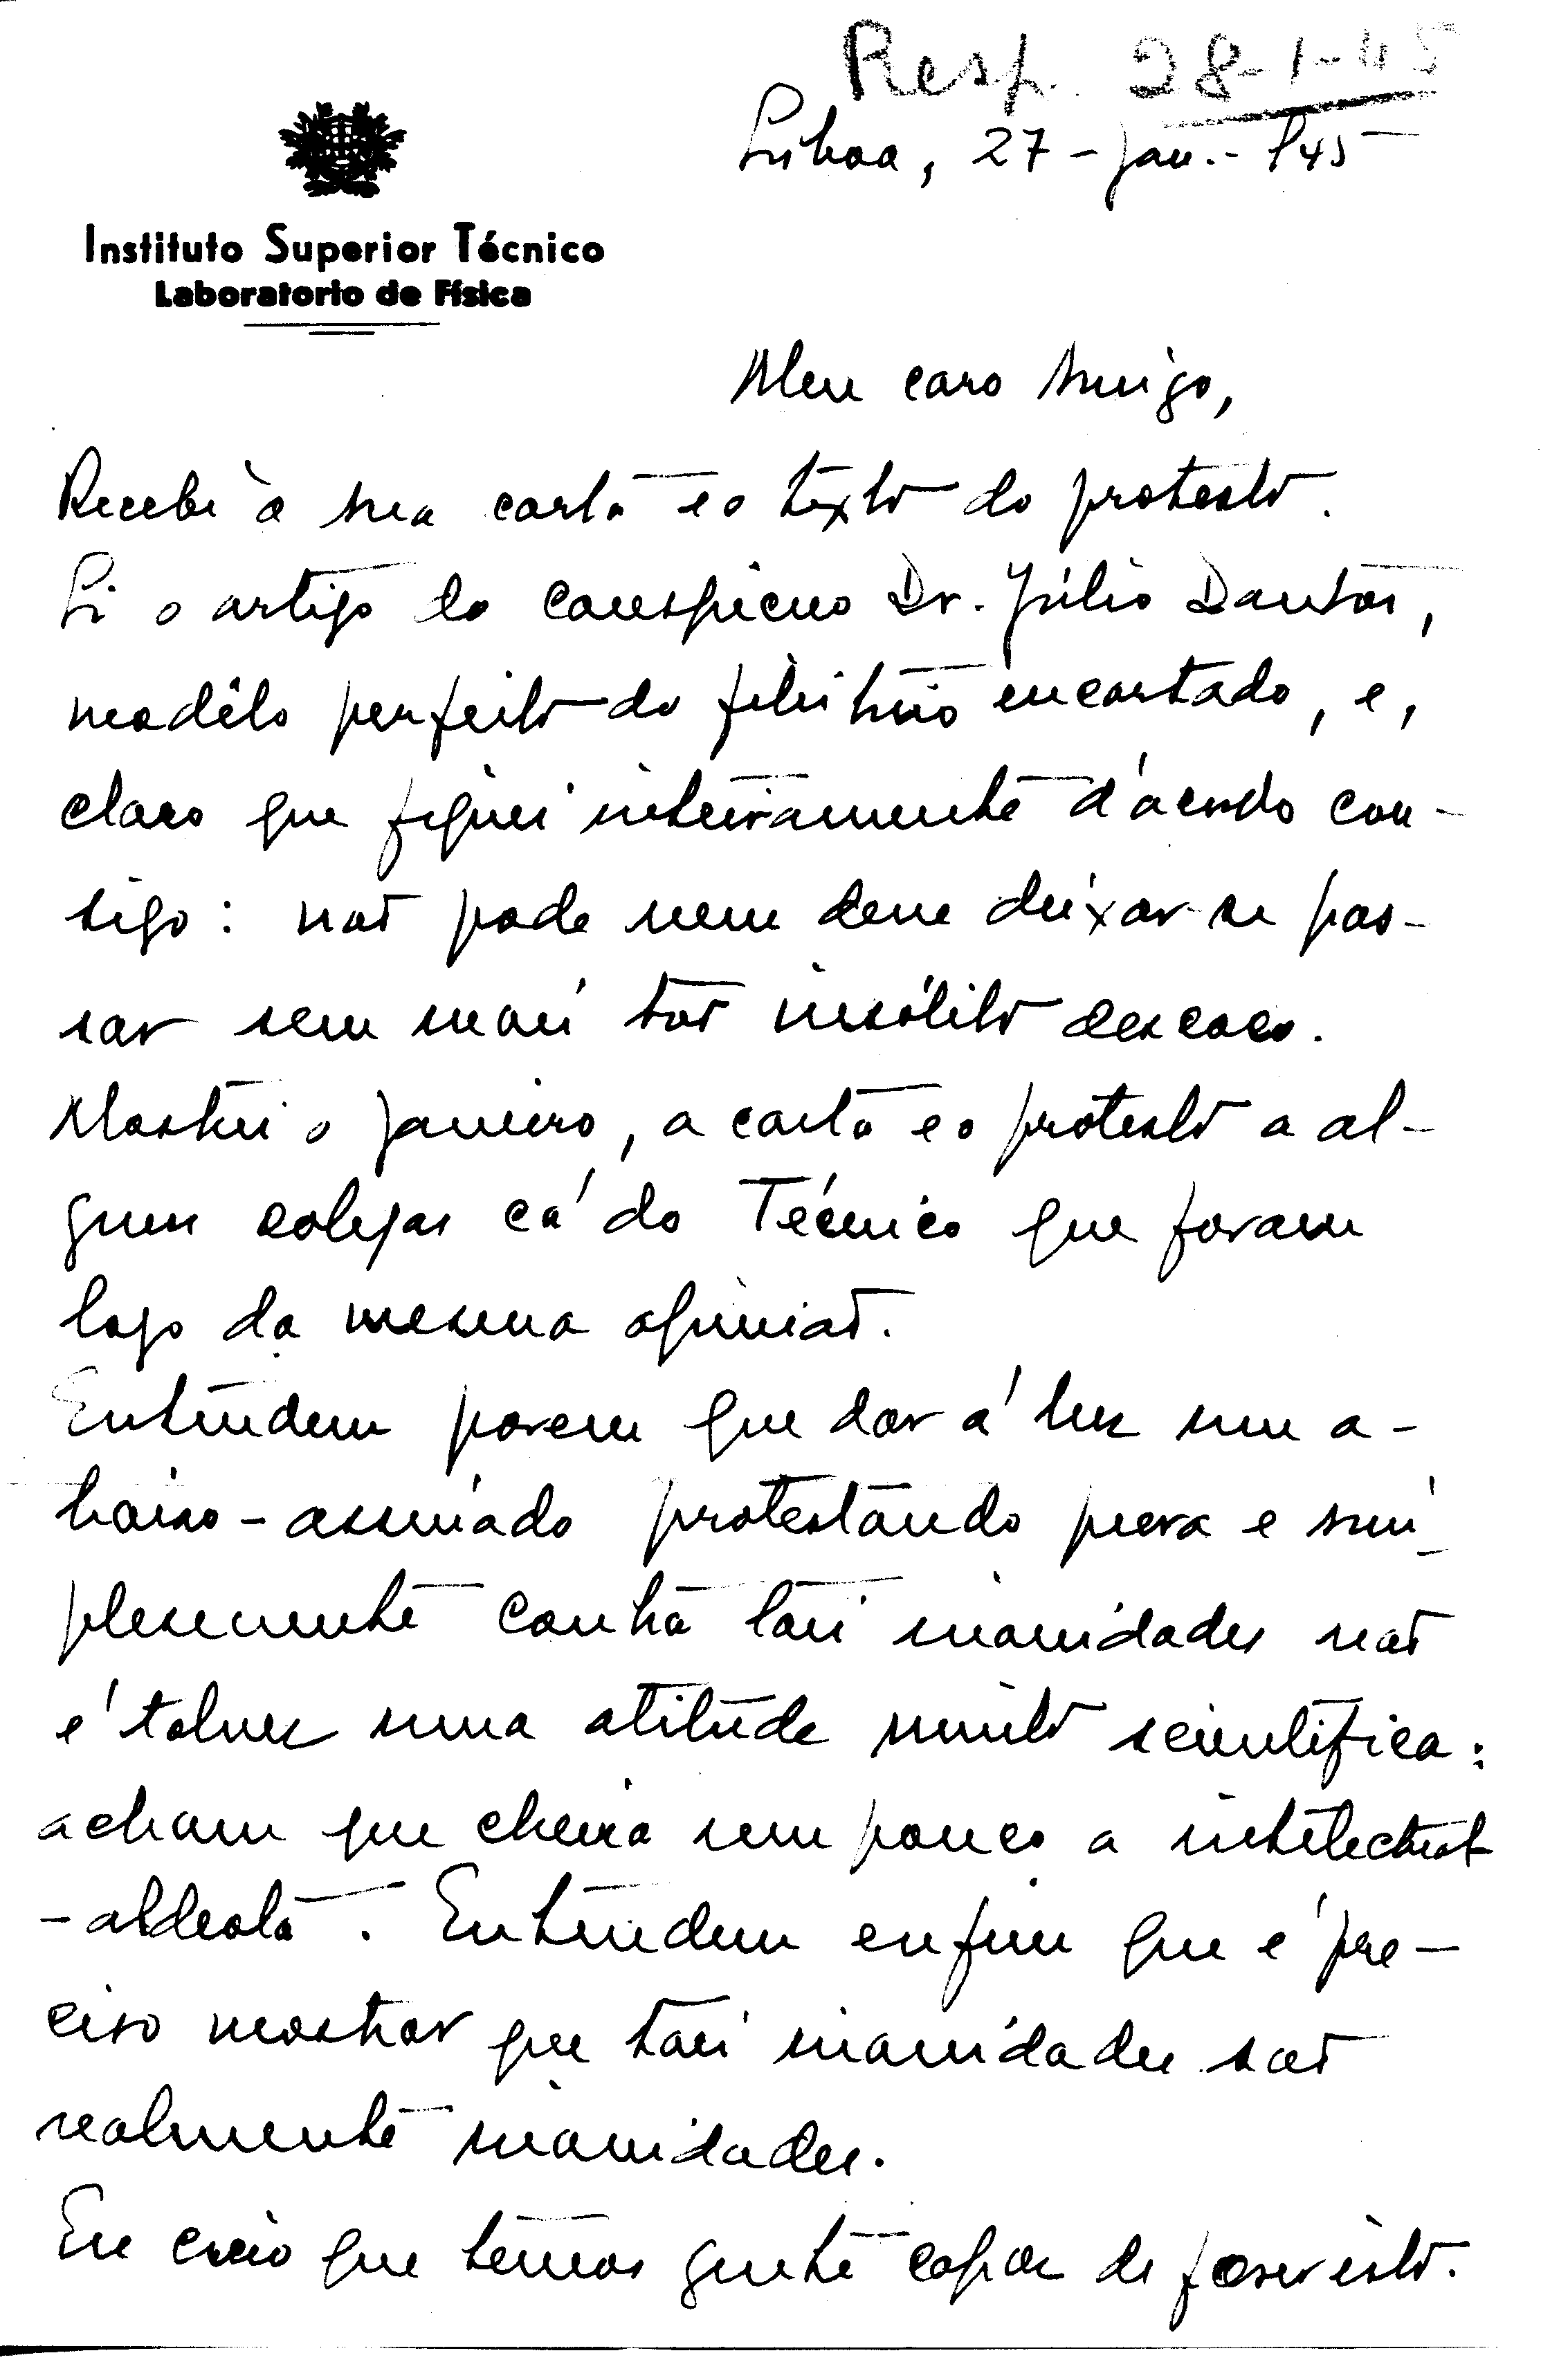 Resp. 28-1-45
Lisboa, 27-Jan.-945
Instituto Superior Técnico
Laboratorio de Física
Meu caro Amigo,
Recebi a sua carta e o texto do protesto.
Li o artigo do conspícuo Dr. Júlio Dantas,
modêlo perfeito do encartado, e,
claro que fiquei inteiramente d'acordo con-
sigo: não pode nem deve deixar-se pas-
sar sem mais tão insólito descaso.
Mostrei o Janeiro, a carta e o protesto a al-
guns colegas cá do Técnico que foram
logo da mesma opinião.
Entendem porem que dar á luz um a-
baixo-assinado protestando pura e sim-
plesmente contra tais inanidades não
é talvez uma atitude muito scientífica:
acham que cheira um pouco a intelectual
-aldeota. Entendem enfim que é pre-
ciso mostrar que tais inanidades são
realmente inanidades.
Eu creio que temos gente capaz de fazer isto.